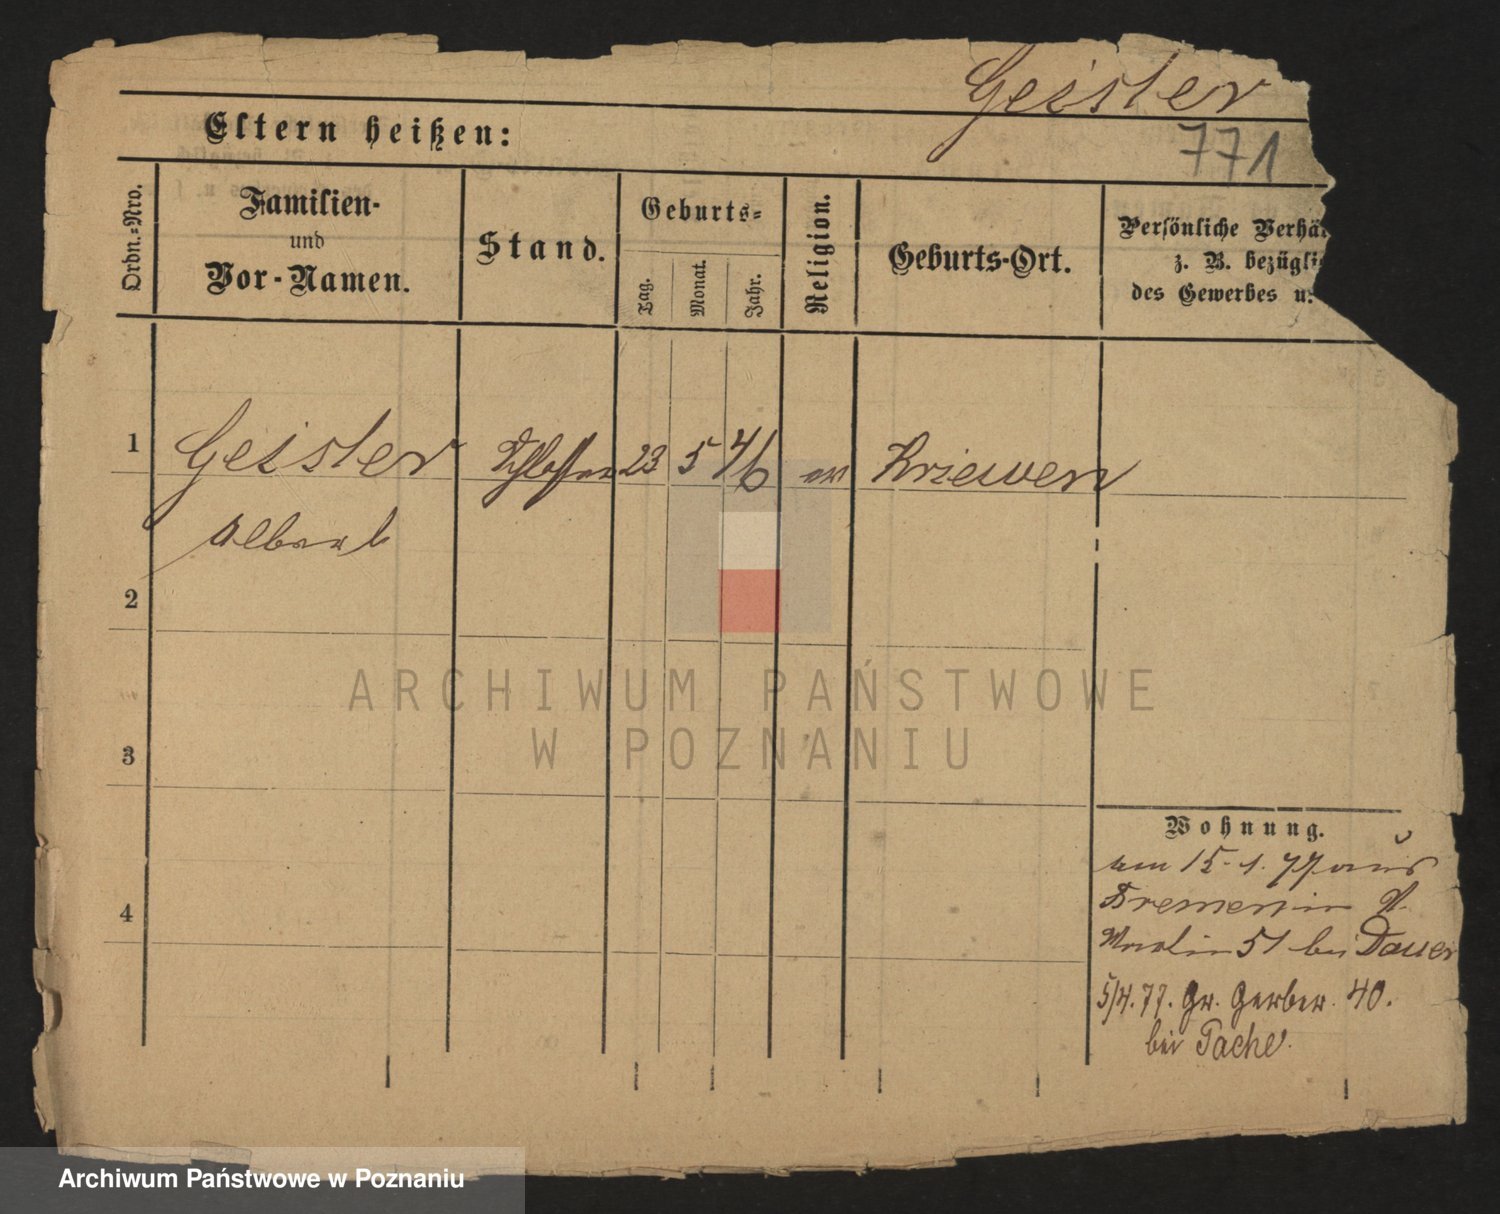 Geister
Eltern heißen:
771
Ordn.-Nro.
Familien-
und
Vor-Namen.
Stand.
Geburts-
Tag.
Monat.
Jahr.
Religion.
Geburts-Ort.
Persönliche Verhäl
z. B. bezüglic
des Gewerbes u.
1 Geister Schlosser 23 5 46 ev Kriewen
Albert
2
3
4
ARCHIWUM PAŃSTWOWE
W POZNANIU
Wohnung.
am 15.1.77 aus
Bremen in St.
51 bei Dauer
5/4.77. Gr. Gerber. 40.
bei Pache.
Archiwum Państwowe w Poznaniu